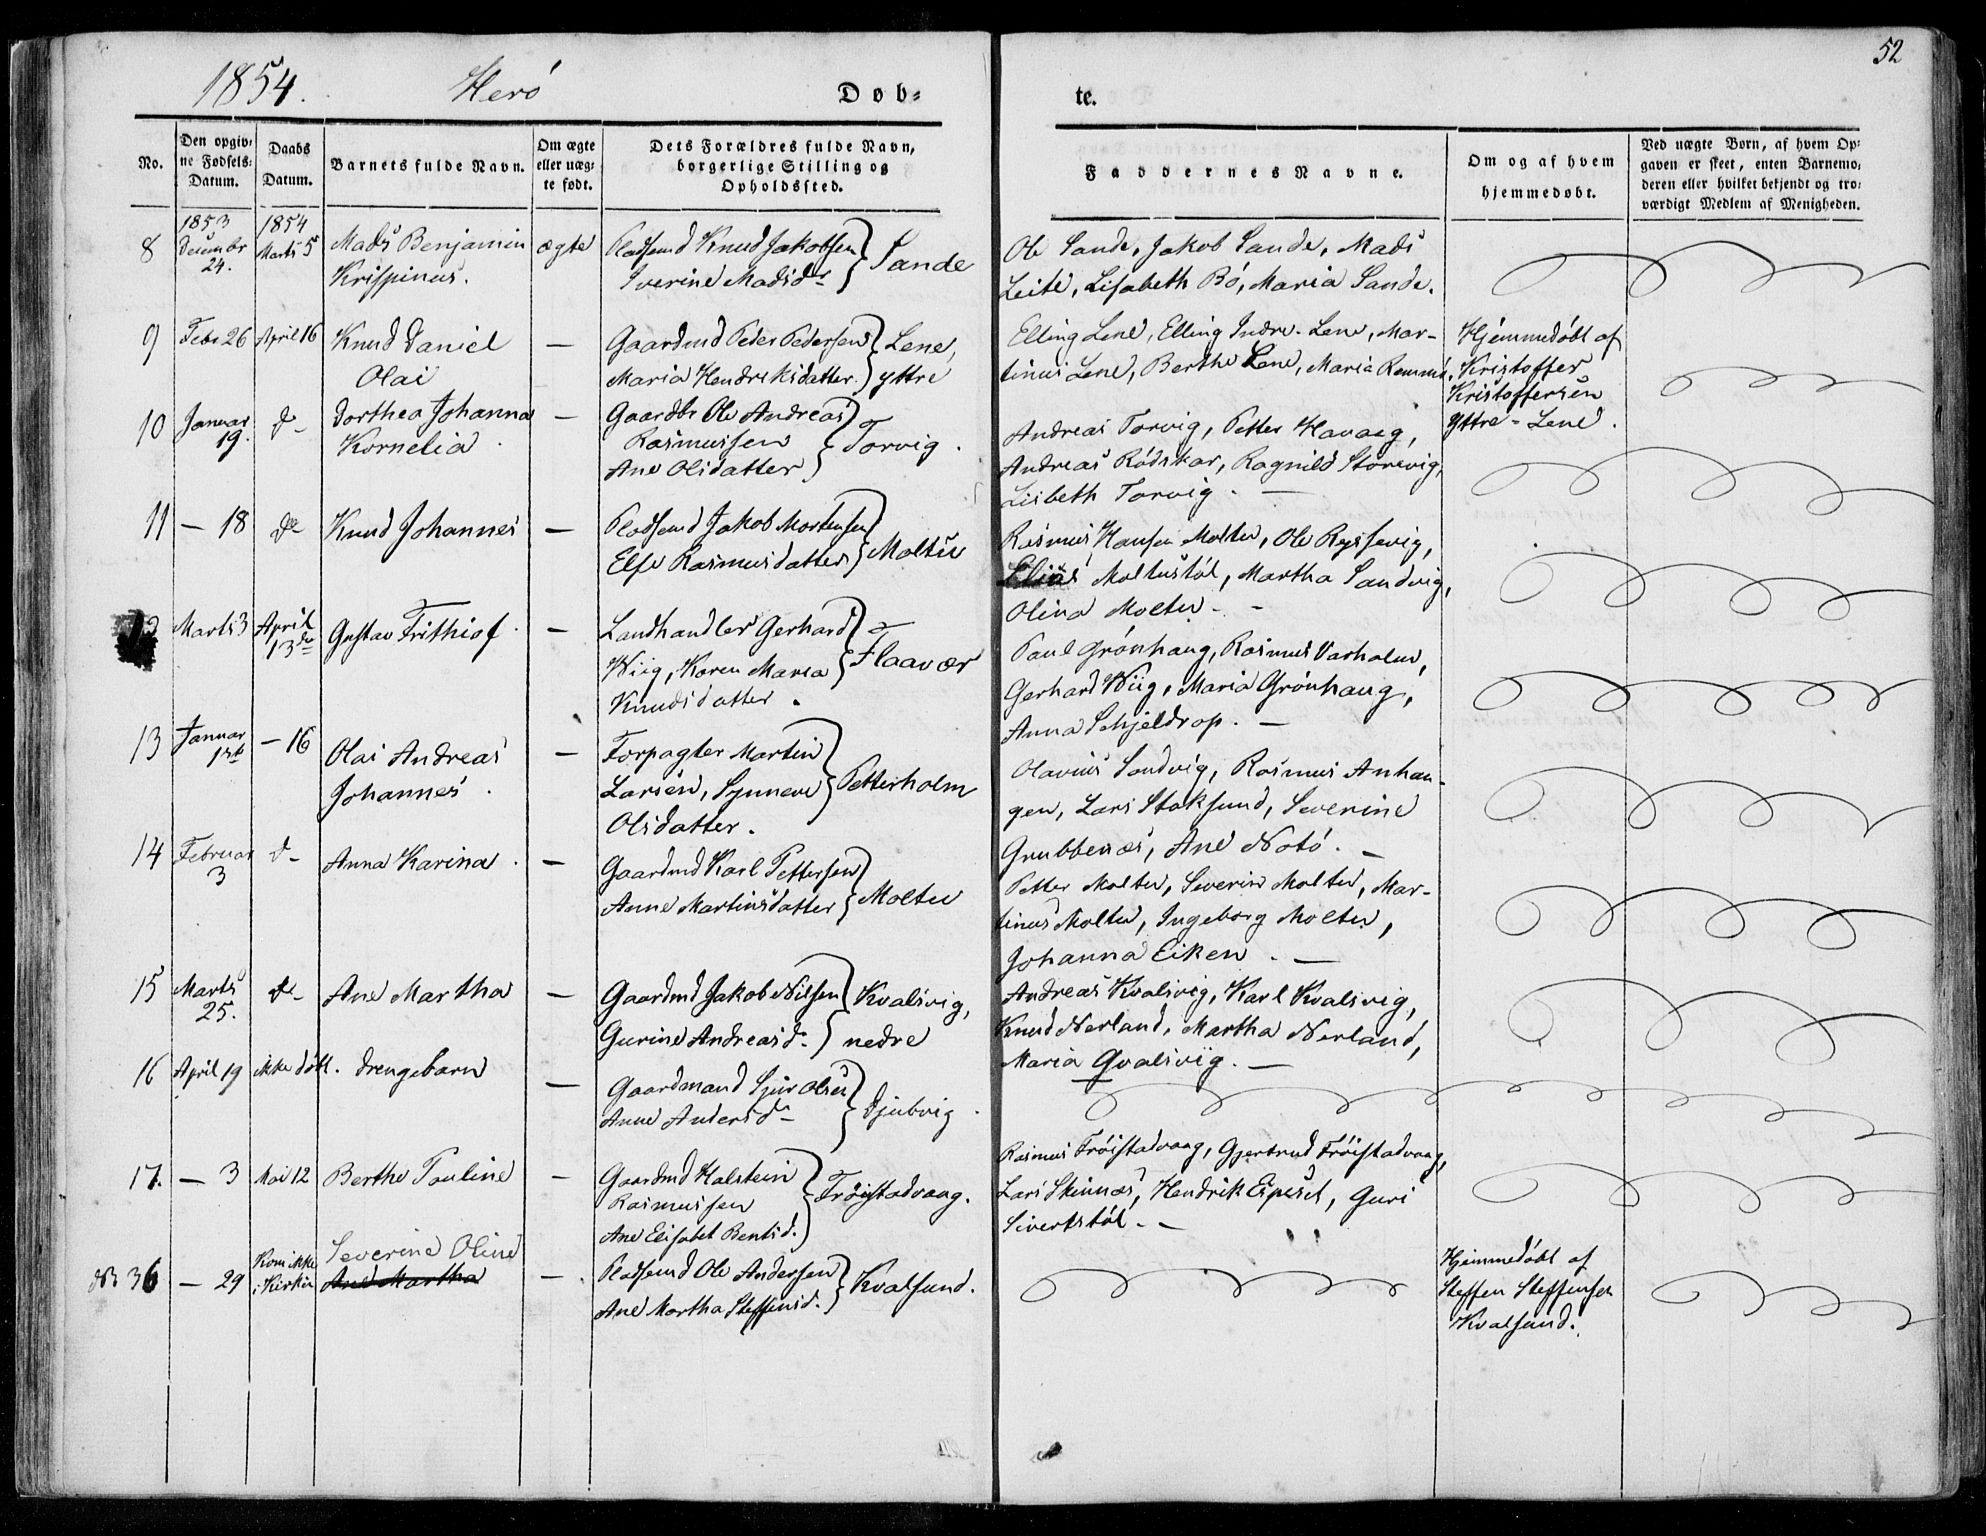 52
1854. Herö Døb- te.
No.
Den opgivne Fødsels-Datum.
Daabs Datum.
Barnets fulde Navn.
Om ægte eller uægte født.
Dets Forældres fulde Navn, borgerlige Stilling og Opholdssted.
Faddernes Navne.
Om og af hvem hjemmedøbt.
Ved uægte Børn, af hvem Opgaven er skeet, enten Barnemoderen eller hvilket bekjendt og troværdigt Medlem af Menigheden.
1853 1854
8 December 24. Marts 5 Mads Benjamin Krispinus. ægte
Pladsmd Knud Jakobsen
Iverine Madsdr } Sande
Ole Sande, Jakob Sande, Mads
Leite, Lisabeth Bö, Maria Sande.
9 Febr 26 April 16 Knud Daniel Olai —
Gaardmd Peder Pedersen
Maria Hendriksdatter. } Lene, yttre
Elling Lene, Elling Indre-Lene, Mar-
tinus Lene, Berthe Lene, Maria Remmö.
Hjemmedöbt af
Kristoffer
Kristoffersen
Yttre-Lene.
10 Januar 19. do Dorthea Johanna Kornelia. —
Gaardbr Ole Andreas
Rasmussen
Ane Olsdatter } Torvig.
Andreas Torvig, Petter Havaag,
Andreas Rödskar, Ragnild Storevig,
Lisbeth Torvig. —
11 — 18 do Knud Johannes —
Pladsmd Jakob Mortensen
Else Rasmusdatter } Moltu
Rasmus Hansen Moltu, Ole Rejssevig,
Elias Moltustöl, Martha Sandvig,
Olina Moltu. —
Marts 3 April 13de Gustav Frithiof. —
Landhandler Gerhard
Wiig, Karen Maria
Knudsdatter. } Flaavær
Paul Grönhaug, Rasmus Varholm,
Gerhard Wiig, Maria Grönhaug,
Anna Schjeldrop. —
13 Januar 1ste — 16 Olai Andreas Johannes. —
Forpagter Martin
Larsen, Synneve
Olsdatter. } Petterholm
Olavius Sandvig, Rasmus Anhau-
gen, Lars Stoksund, Severine
Grubbenæs, Ane Notö. —
14 Februar 3 do Anna Karina. —
Gaardmd Karl Pettersen
Anne Martinsdatter } Moltu
Petter Moltu, Severin Moltu, Mar-
tinus Moltu, Ingeborg Moltu,
Johanna Eiken. —
15 Marts 25. do Ane Martha —
Gaardmd Jakob Nilsen
Gurine Andreasd. } Kvalsvig, nedre
Andreas Kvalsvig, Karl Kvalsvig,
Knud Nerland, Martha Nerland,
Maria Qvalsviig. —
16 April 19 ikke döbt. Drengebarn —
Gaardmand Sjur Olsen
Anne Andersd. } Djubvig.
17. — 3 Mai 12 Berthe Pauline —
Gaardmd Halstein
Rasmussen
Ane Elisabet Bentsd. } Fröistadvaag.
Rasmus Fröistadvaag, Gjertrud Fröistadvaag,
Lars Skinnes, Hendrik Espeset, Guri
Sivertstöl. —
NB 36 — 29 Kom ikke i Kirken Severine Oline
Ane Martha —.
Pladsmd Ole Andersen
Ane Martha Steffensd. } Kvalsund.
Hjemmedöbt af
Steffen Steffensen
Kvalsund.